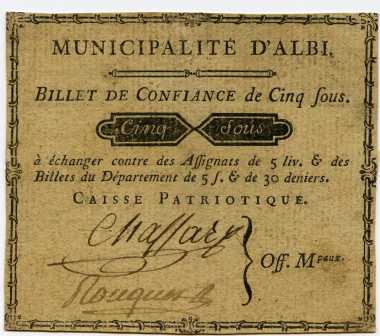 MUNICIPALITÉ D'ALBI.
BILLET DE CONFIANCE de Cinq ſous.
Cinq ſous
à échanger contre des Aſſignats de 5 liv. & des
Billets du Département de 5 ſ. & de 30 deniers.
CAISSE PATRIOTIQUE.
Off. Mpaux.